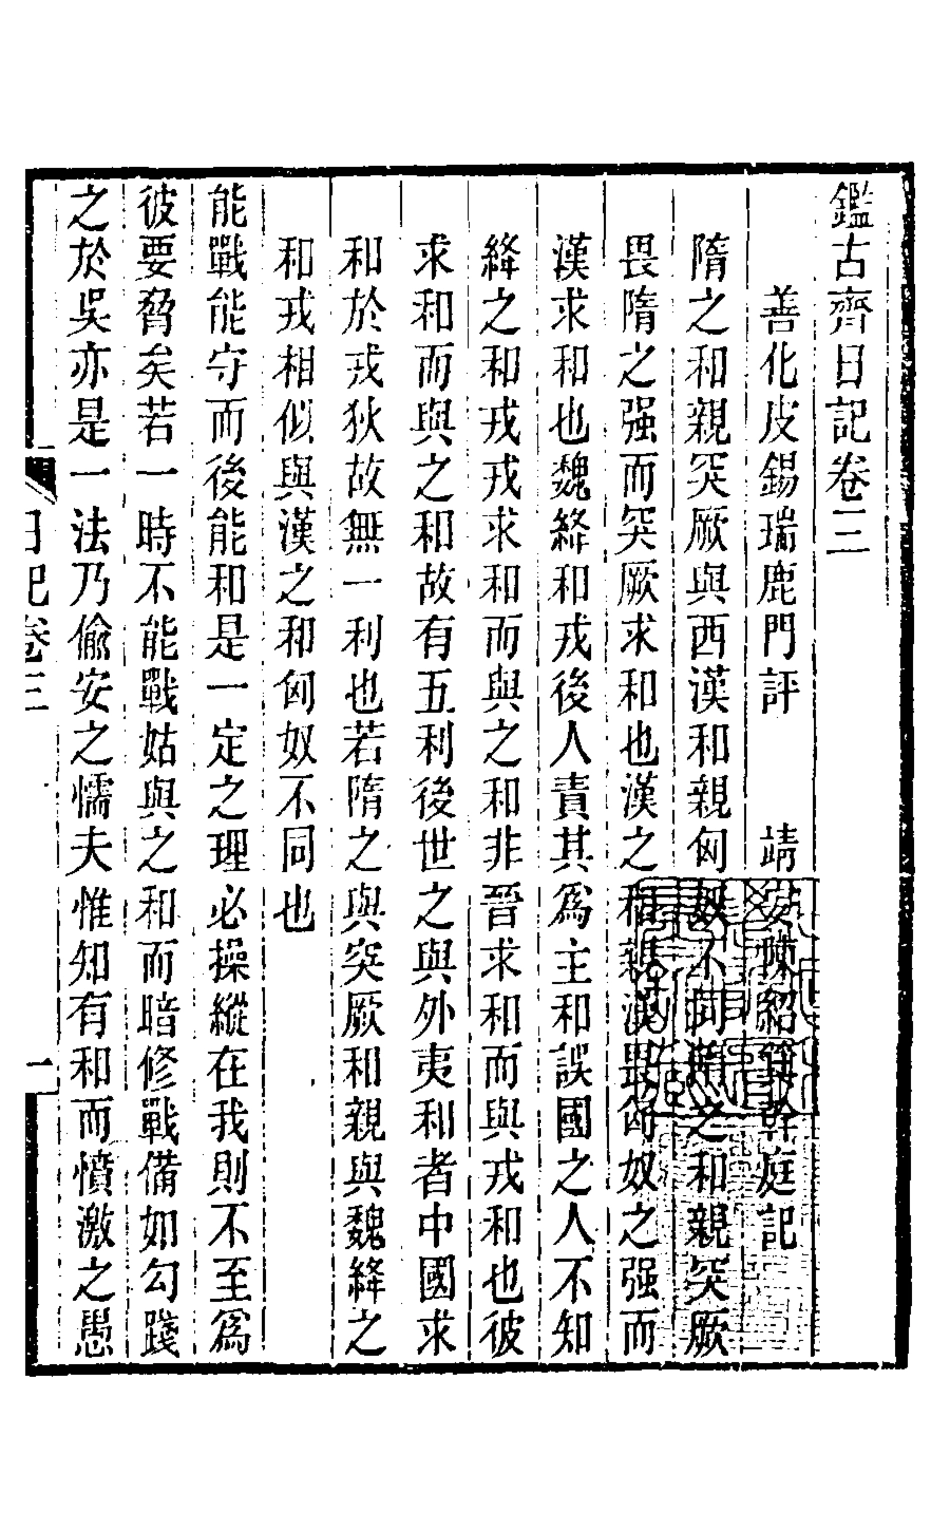 鑑古齋日記卷三
善化皮錫瑞鹿門評 靖安陳紹箕幹庭記
隋之和親突厥與西漢和親匈奴不同隋之和親突厥
畏隋之强而突厥求和也漢之和親漢畏匈奴之强而
漢求和也魏絳和戎後人責其爲主和誤國之人不知
絳之和戎戎求和而與之和非晉求和而與戎和也彼
求和而與之和故有五利後世之與外夷和者中國求
和於戎狄故無一利也若隋之與突厥和親與魏絳之
和戎相似與漢之和匈奴不同也
能戰能守而後能和是一定之理必操縱在我則不至爲
彼要脅矣若一時不能戰姑與之和而暗修戰備如勾踐
之於吳亦是一法乃偷安之懦夫惟知有和而憤激之愚
日記卷三 一